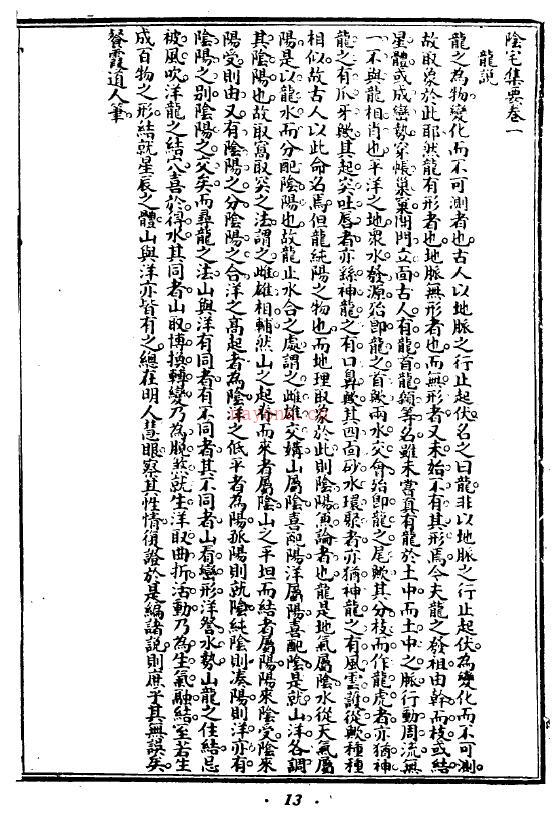 陰宅集要卷一
龍説
龍之為物變化而不可測者也古人以地脈之行止起伏名之曰龍非以地脈之行止起伏為變化而不可測
故取象於此耶然龍有形者也地脈無形者也而無形者又未始不有其形焉今夫龍之發祖由幹而枝或結
星體或成巒勢穿帳巢窠開門立面古人有龍首龍頷等名雖未嘗真有龍於土中而土中之脈行動周流無
一不與龍相肖也平洋之地衆水發源殆即龍之首歟兩水交會殆即龍之尾歟其分枝而作龍虎者亦猶神
龍之有爪牙歟其起突吐唇者亦猻神龍之有口鼻歟其四面砂水環聚者亦猶神龍之有風雲護從歟種種
相似故古人以此命名焉但龍純陽之物也而地理取象於此則陰陽須論者也龍是地氣屬陰水從天氣屬
陽是以龍水而分配陰陽也故龍止水合之處謂之雌雄交媾山屬陰喜配陽洋屬陽喜配陰是就山洋各調
其陰陽也故取窩取突之法謂之雌雄相輔然山之起脊而來者屬陰山之平坦而結者屬陽陽來陰受陰來
陽受則由又有陰陽之分陰陽之合洋之高起者為陰洋之低平者為陽孤陽則就陰純陰則湊陽則洋亦有
陰陽之别陰陽之交矣而尋龍之法山與洋有同者有不同者其不同者山看巒形洋察水勢山龍之住結忌
被風吹洋龍之結穴喜於得水其同者山取博換轉變乃為脫煞就生洋取曲折活動乃為生氣融結至若生
成百物之形結就星辰之體山與洋亦皆有之總在明人慧眼察其性情復證於是編諸説則庶乎其無誤矣
餐霞道人筆
nayona.cn
· 13 ·